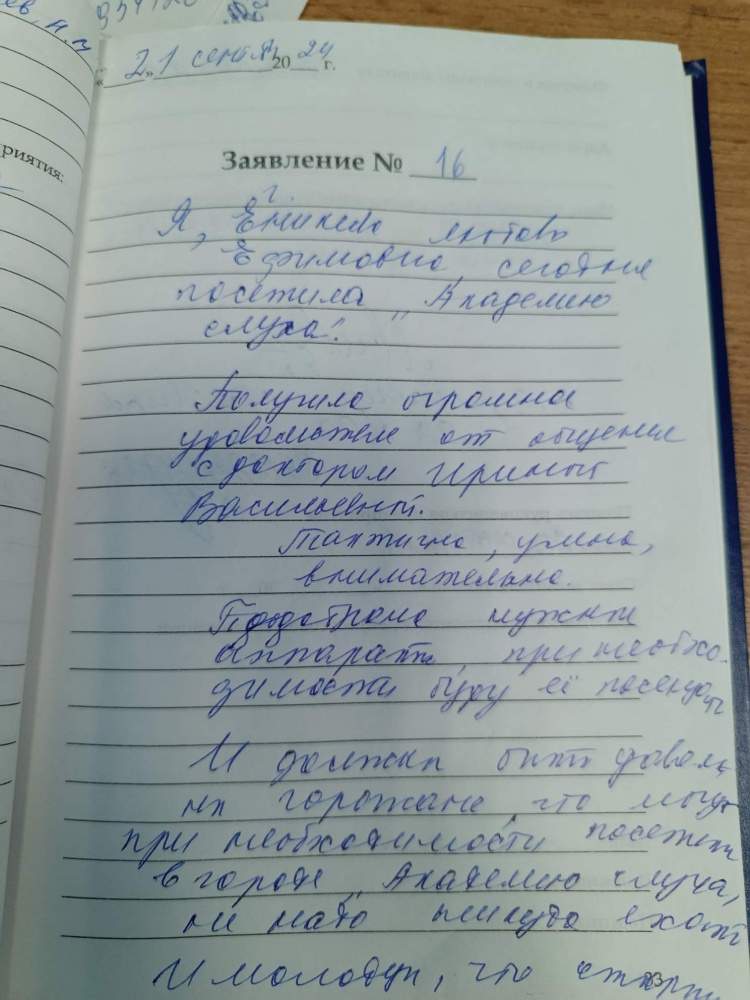 "21" сентяб 2024 г.
риятия:
Заявление № 16
Я, Любовь
Ефимовна, сегодня
посетила „Академию
слуха".
Получила огромное
удовольствие от общения
с доктором Ириной
Васильевной.
Тактична, умна,
внимательна.
Подобрала нужный
аппарат, при необхо-
димости буду её посещать
И должны быть доволь
ны горожане, что могут
при необходимости посетить
в городе „Академию слуха,
не надо никуда ехать
И молодцы, что